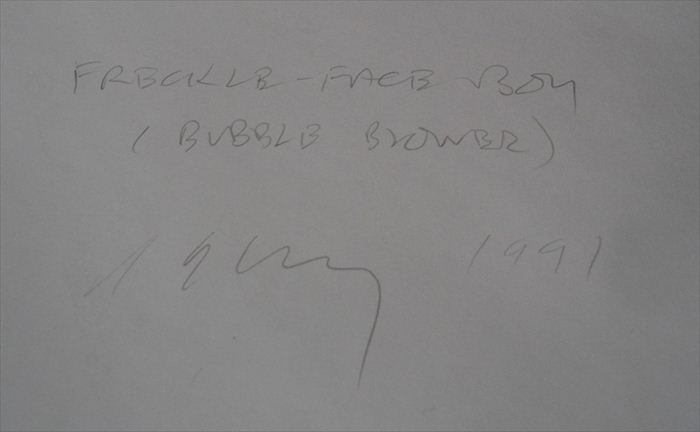 FRECKLE-FACE BOY
(BUBBLE BLOWER)
1991